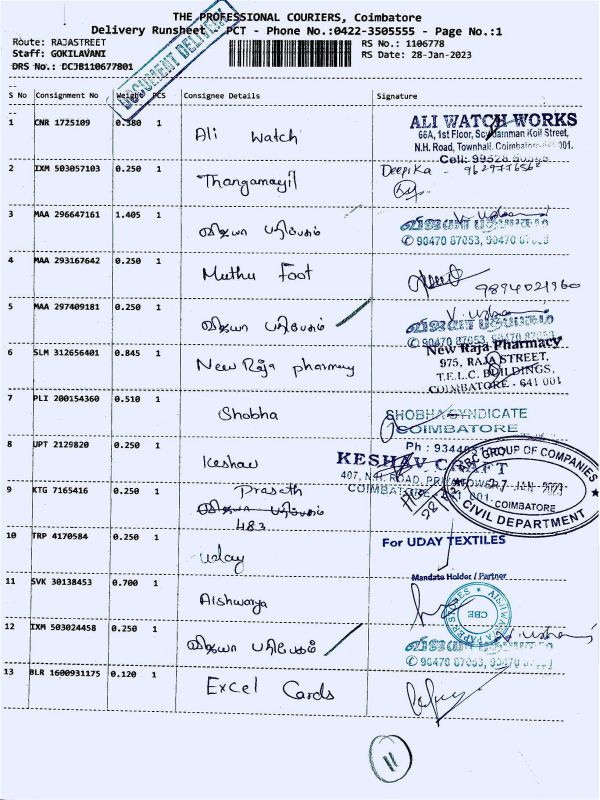 THE PROFESSIONAL COURIERS, Coimbatore
Delivery Runsheet PCT - Phone No.:0422-3505555 - Page No.:1
Route: RAJASTREET
RS No.: 1106778
Staff: GOKILAVANI
RS Date: 28-Jan-2023
DRS No.: DCJB110677801
DOCUMENT DELIVERY
S No Consignment No Weight PCS Consignee Details Signature
1 CNR 1725109 0.380 1 Ali Watch
ALI WATCH WORKS
66A, 1st Floor, Koil Street,
N.H. Road, Townhall, Coimbatore 001.
Cell:
2 IXM 503057103 0.250 1 Thangamayil
Deepika -
3 MAA 296647161 1.405 1 விஜயா பதிப்பகம்
விஜயா பதிப்பகம்
✆ 90470 87053,
4 MAA 293167642 0.250 1 Muthu Foot
9894021960
5 MAA 297409181 0.250 1 விஜயா பதிப்பகம்
விஜயா பதிப்பகம்
✆ 90470 87053,
6 SLM 312656401 0.845 1 New Raja pharmacy
New Raja Pharmacy
975, RAJA STREET,
T.E.L.C. BUILDINGS,
COIMBATORE - 641 001
7 PLI 200154360 0.510 1 Shobha
SHOBHA SYNDICATE
COIMBATORE
8 UPT 2129820 0.250 1 Keshav
KESHAV CRAFT
407, N.H. ROAD,
COIMBATORE 641 001.
9 KTG 7165416 0.250 1 Prasath
483
GROUP OF COMPANIES
COIMBATORE
CIVIL DEPARTMENT
10 TRP 4170584 0.250 1 uday
For UDAY TEXTILES
Mandate Holder / Partner
11 SVK 30138453 0.700 1 Aishwarya
AISHWARYA PAPER STORES
CBE
12 IXM 503024458 0.250 1 விஜயா பதிப்பகம்
விஜயா பதிப்பகம்
✆ 90470 87053,
13 BLR 1600931175 0.120 1 Excel Cards
11